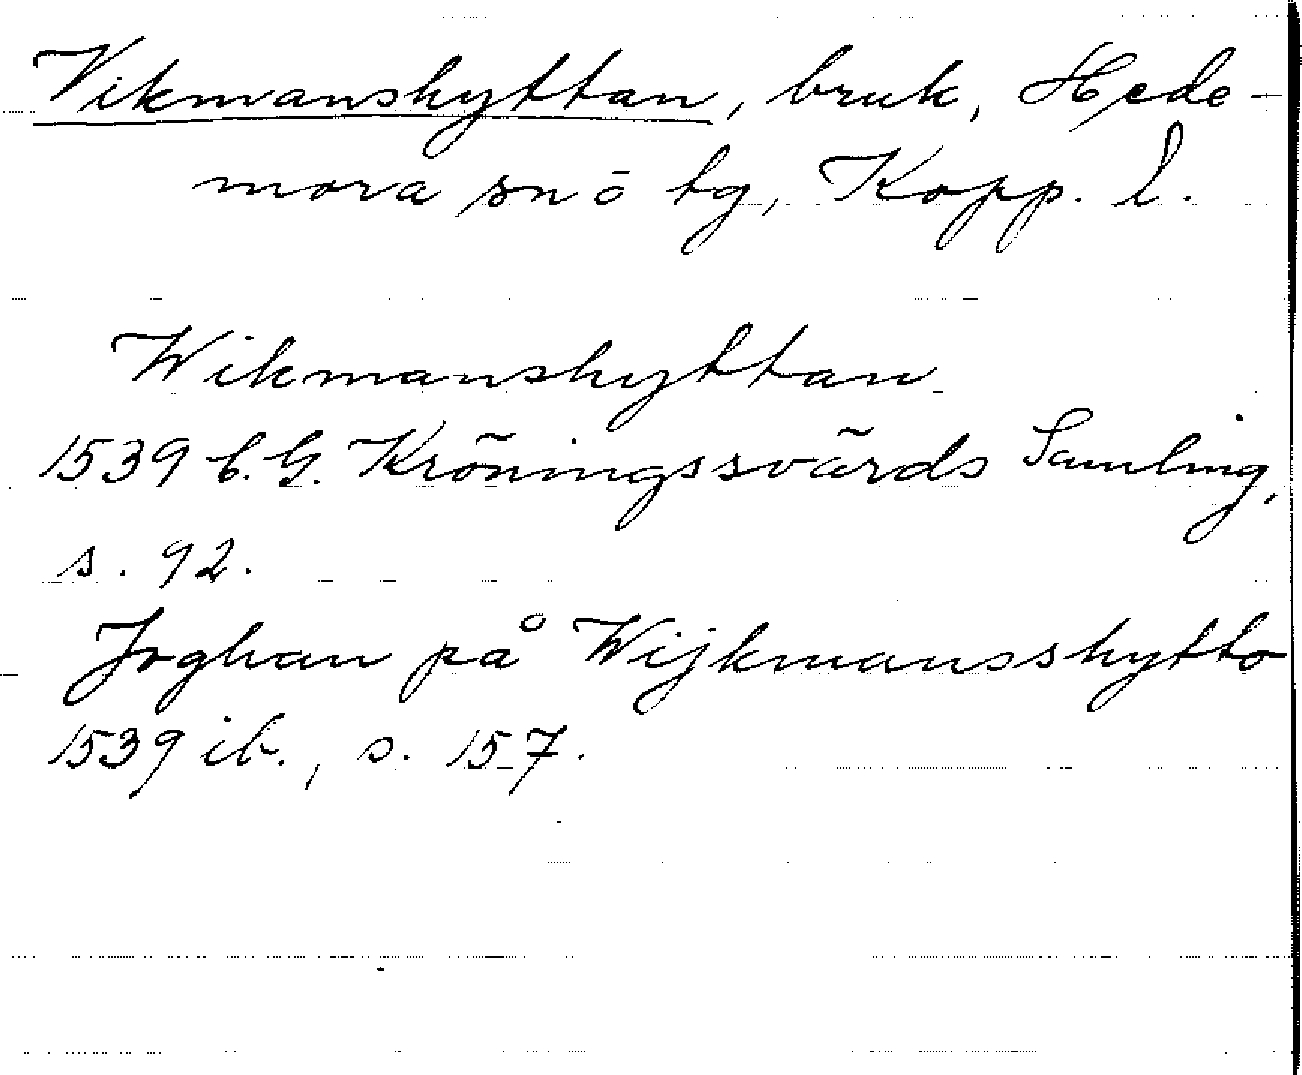 Vikmanshyttan, bruk, Hede-
mora sn ö tg, Kopp. l.
Wikmanshyttan
1539 C. G. Kröningssvärds Samling,
s. 92.
Joghan på Wijkmansshytto
1539 ib., s. 157.